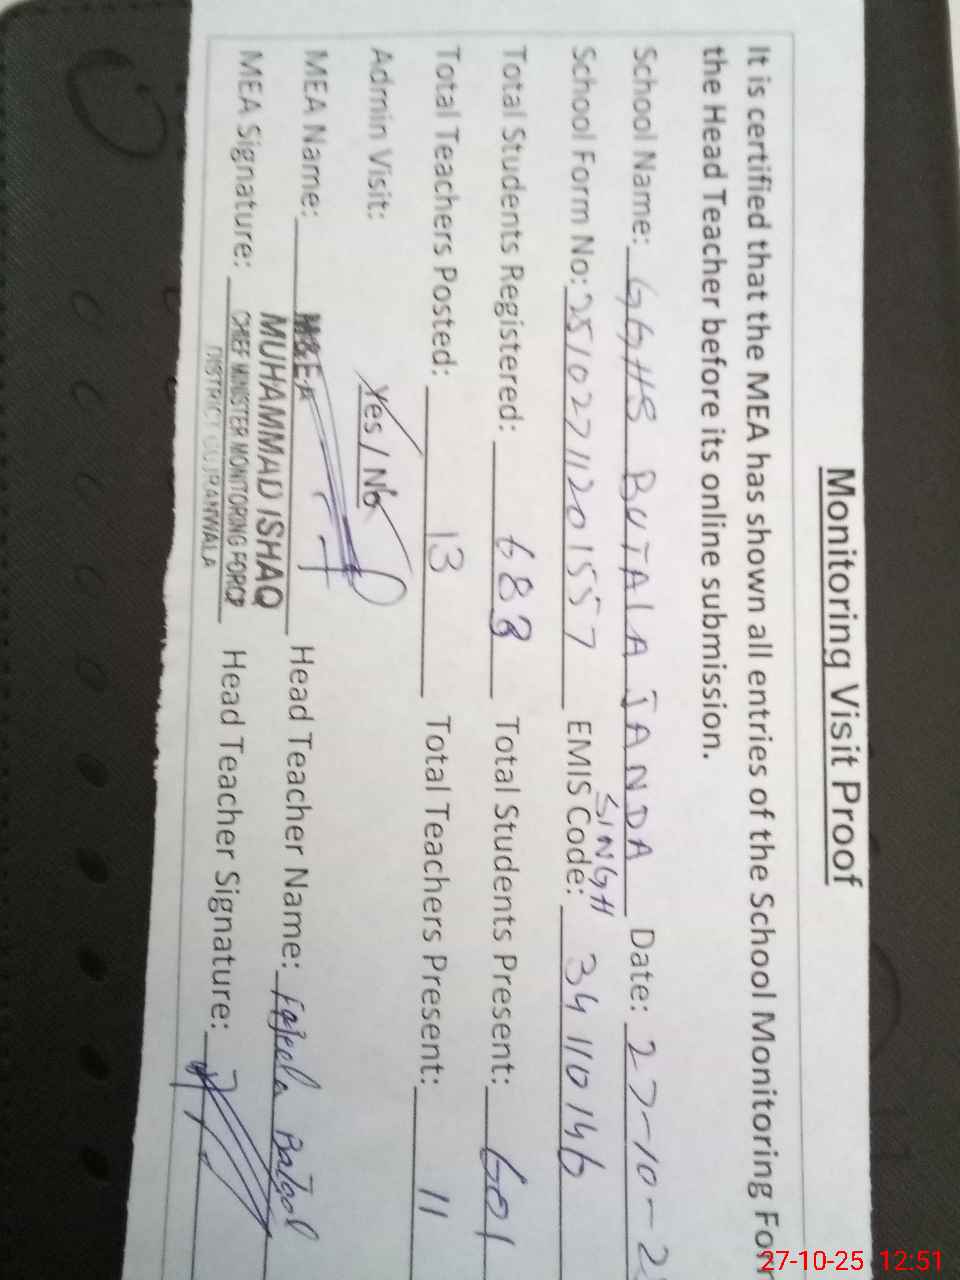 Monitoring Visit Proof
It is certified that the MEA has shown all entries of the School Monitoring For
the Head Teacher before its online submission.
School Name: GGHS BUTALA JANDA SINGH Date: 27-10-2
School Form No: 25102711201557 EMIS Code: 34110146
Total Students Registered: 688 Total Students Present: 601
Total Teachers Posted: 13 Total Teachers Present: 11
Admin Visit: Yes / No
MEA Name: M&EA Head Teacher Name: Batool
MUHAMMAD ISHAQ
MEA Signature: CHIEF MINISTER MONITORING FORCE Head Teacher Signature:
DISTRICT GUJRANWALA
27-10-25 12:51